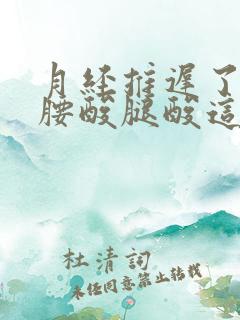 月经推遲了
腰酸腿酸這
杜清詞
未任同意禁止转载